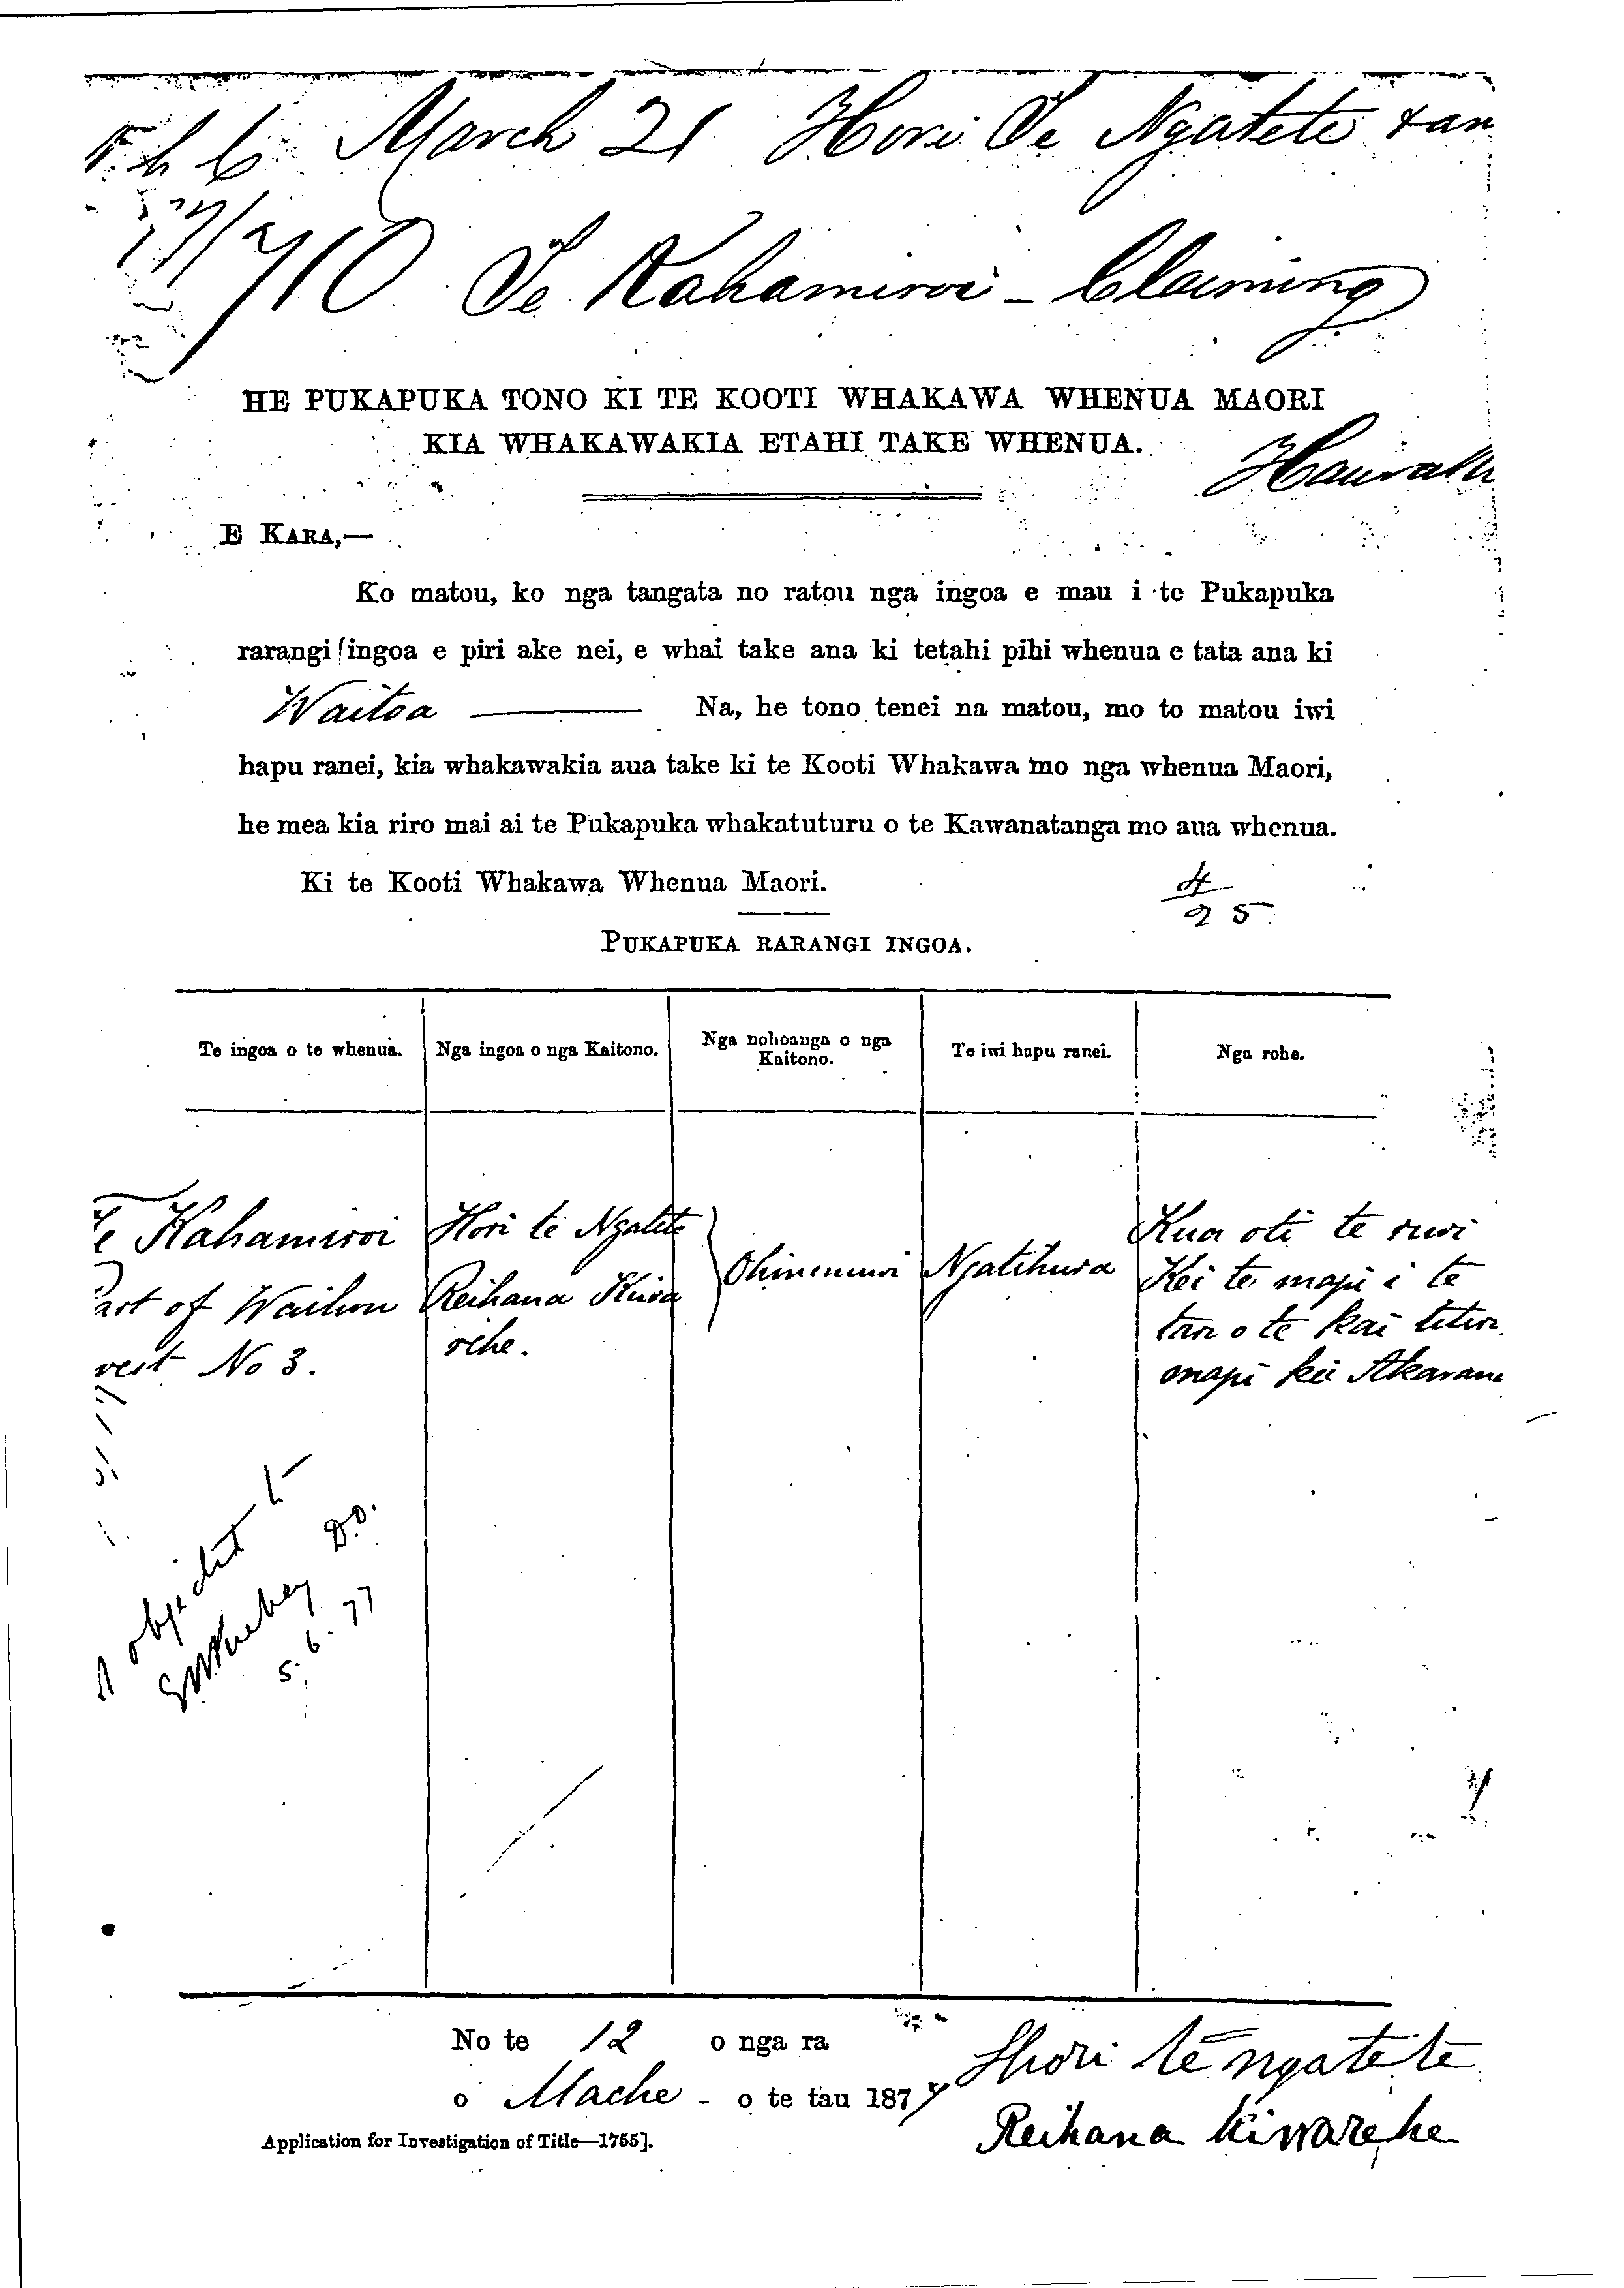 March 21 Hori Te Ngatete & an
Te Kahamiroi - Claiming
HE PUKAPUKA TONO KI TE KOOTI WHAKAWA WHENUA MAORI
KIA WHAKAWAKIA ETAHI TAKE WHENUA.
Hauraki
E KARA,—
Ko matou, ko nga tangata no ratou nga ingoa e mau i te Pukapuka
rarangi ingoa e piri ake nei, e whai take ana ki tetahi pihi whenua e tata ana ki
Waitoa — Na, he tono tenei na matou, mo to matou iwi
hapu ranei, kia whakawakia aua take ki te Kooti Whakawa mo nga whenua Maori,
he mea kia riro mai ai te Pukapuka whakatuturu o te Kawanatanga mo aua whenua.
Ki te Kooti Whakawa Whenua Maori.
25
PUKAPUKA RARANGI INGOA.
Te ingoa o te whenua.
Nga ingoa o nga Kaitono.
Nga nohoanga o nga
Kaitono.
Te iwi hapu ranei.
Nga rohe.
Te Kahamiroi
Part of Waihou
west No 3.
Hori te Ngatete
Reihana Kiwa
rehe.
Ohinemuri
Ngatihura
Kua oti te ruri
Kei te mapi i te
tari o te kai titiro
mapi kii Akarana
objected to
D.O.
5.6.77
No te 12 o nga ra
o Mache - o te tau 1877
Hori te ngatete
Reihana kiwarehe
Application for Investigation of Title—1755].